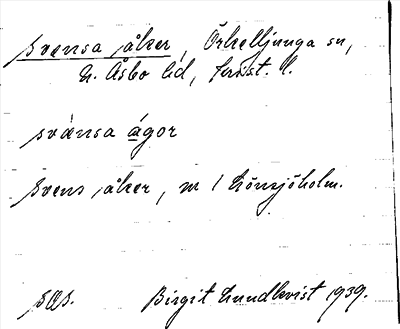 Svensa åker, Örkelljunga sn,
N. Åsbo hd, Krist. l.
svänsa ágor
Svens åker, m / Lönsjöholm.
Birgit Lundkvist 1939.